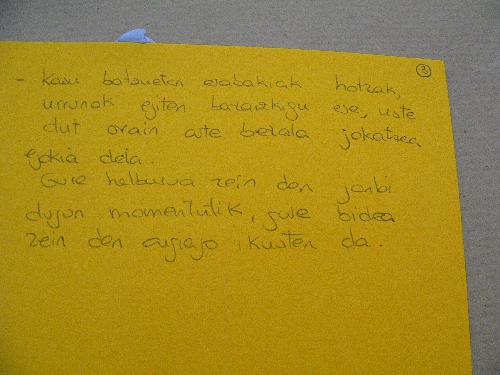 ③
- Kasu batzuetan erabakiak hotzak,
urrunak egiten bazaizkigu ere, uste
dut orain arte bezala jokatzea
egokia dela.
Gure helburua zein den jarbi
dugun momentutik, gure bidea
zein den argiago ikusten da.